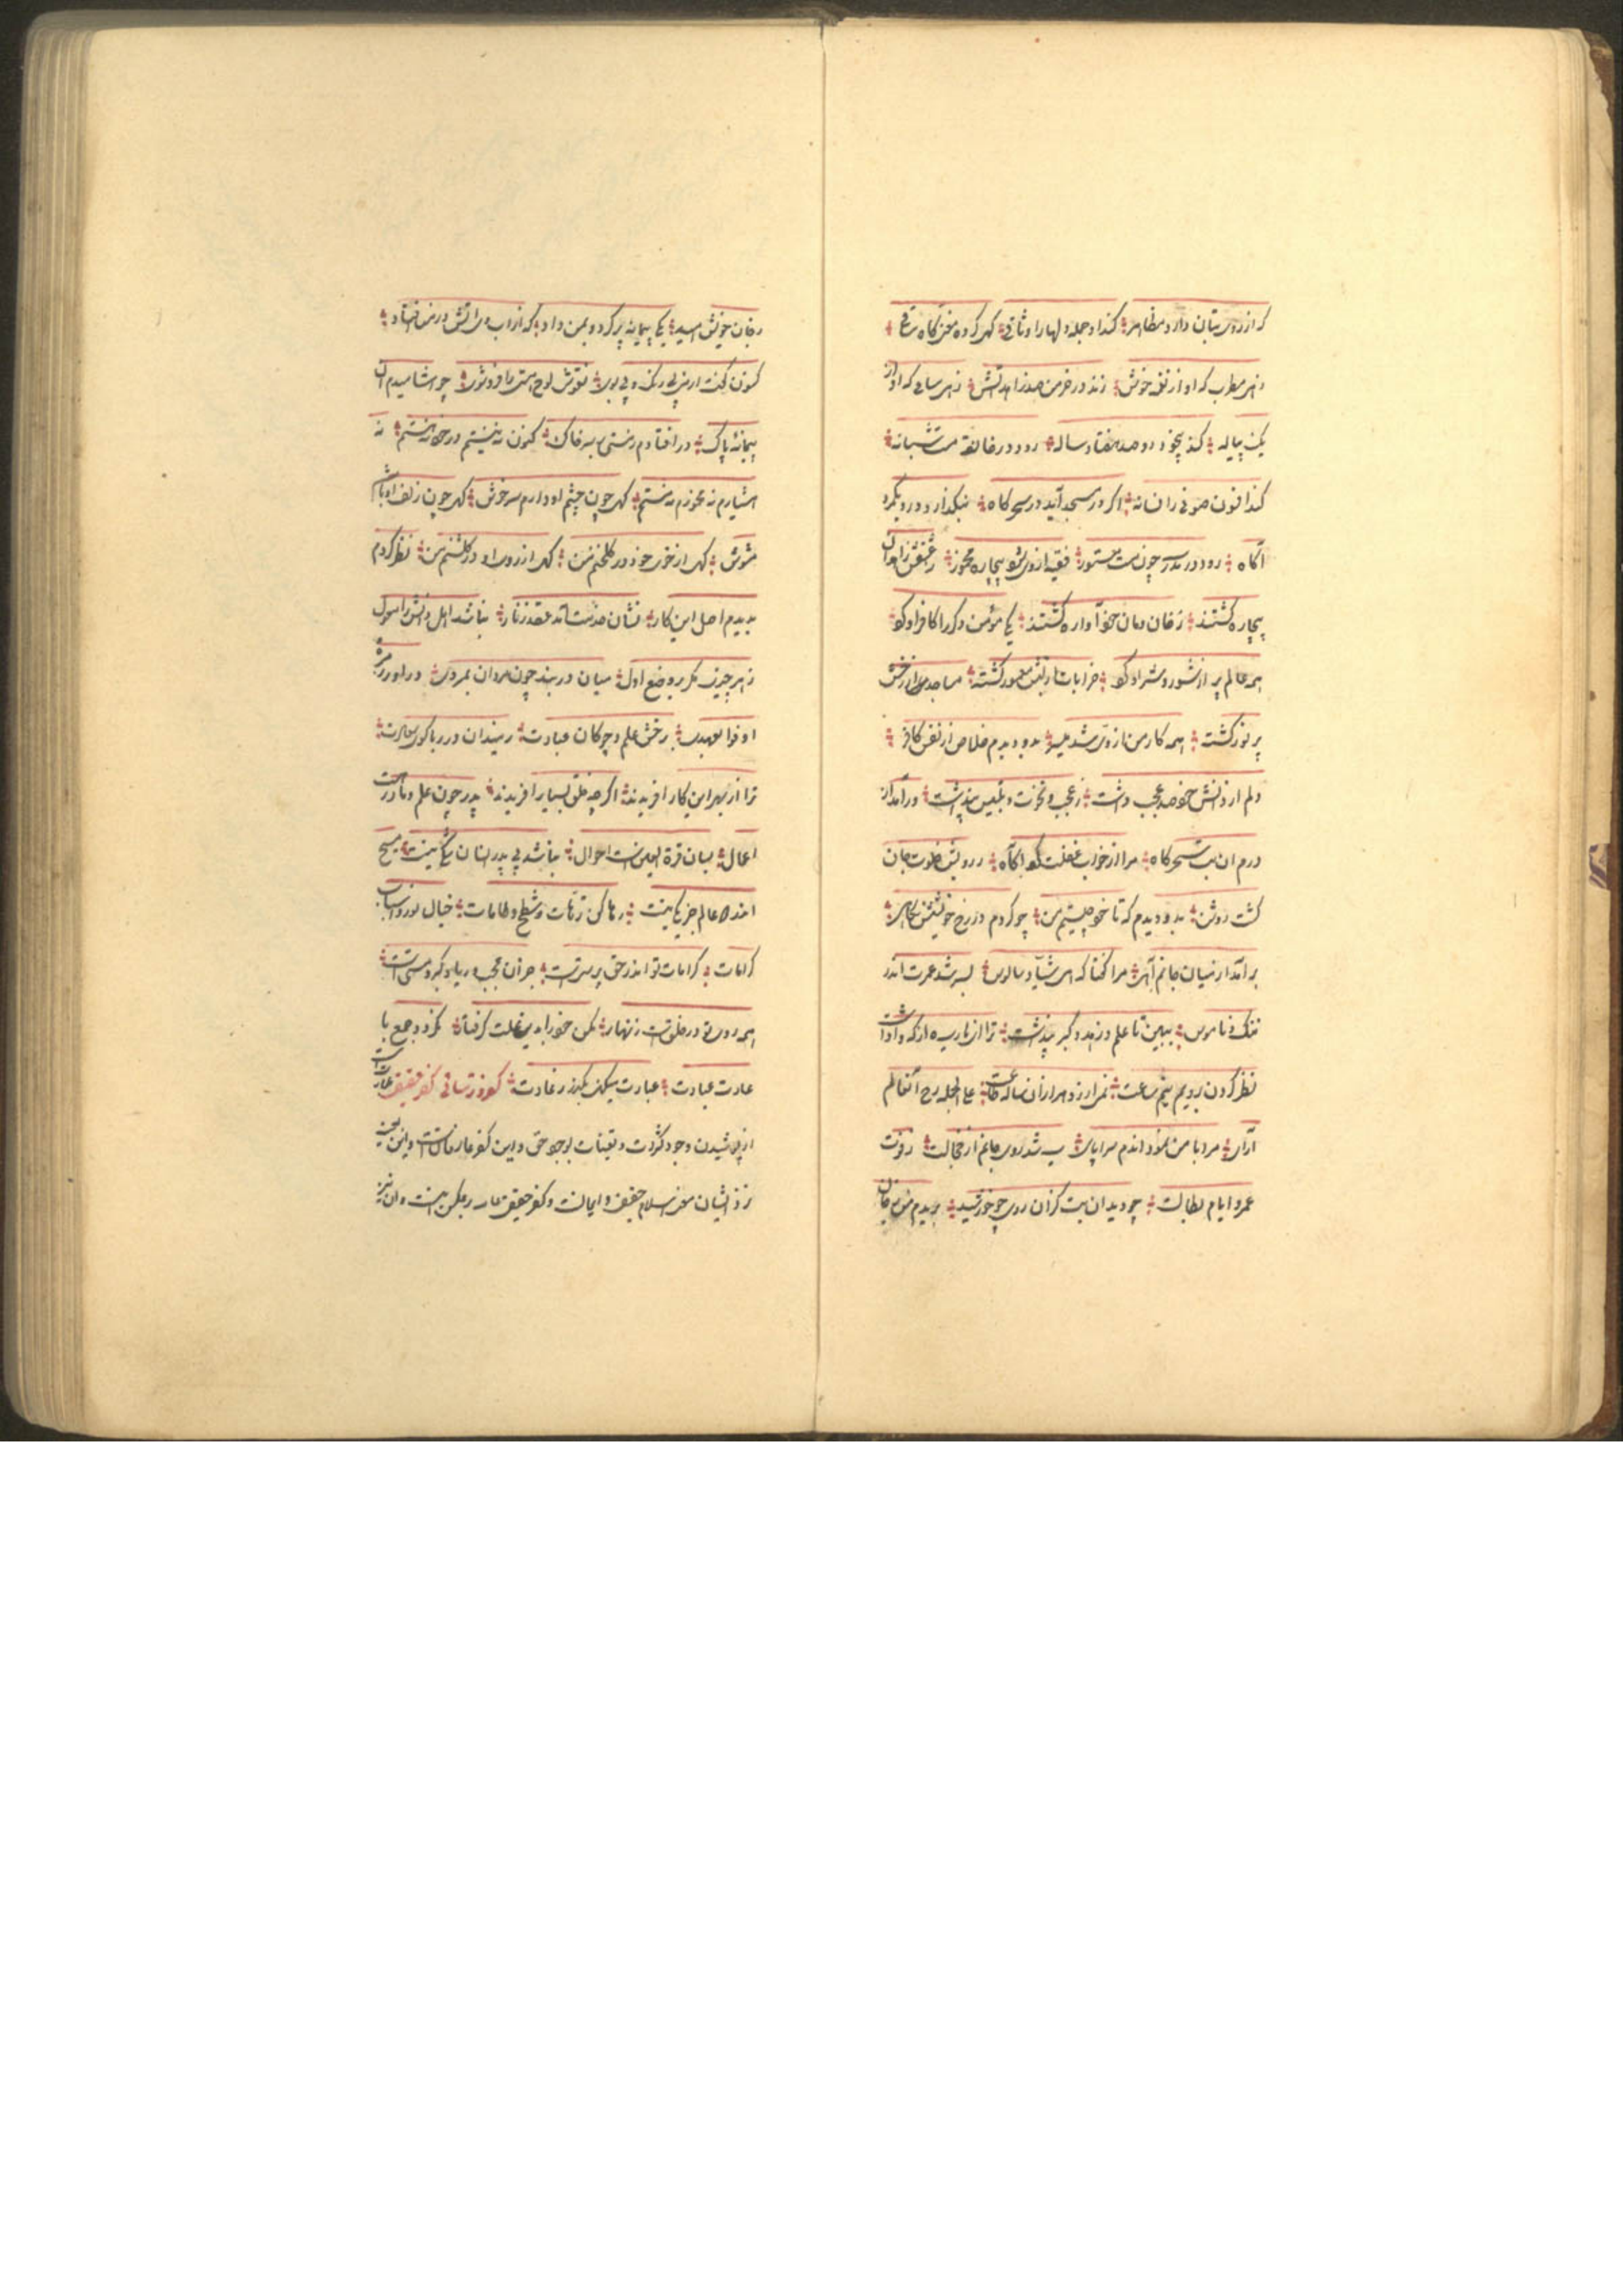 که از روی بتان دارد مظاهر کند او جمله دلها را وثاقی کهی کردد مغنی گاه ساقی
زهی مطرب که او از نغمه خوش زند در خرمن صد زاهد آتش زهی ساقی که او از
یک پیاله کند بیخود دو صد هفتاد ساله رود در خانقه مست شبانه
کند افسون صوفی را فسانه اگر در مسجد آید در سحرگاه بنگذارد درو یک مرد
آگاه رود در مدرسه چون مست مستور فقیه از وی شود بیچاره مخمور ز عشقش زاهدان
بیچاره گشتند ز خان و مان خود آواره گشتند یکی مؤمن دگر را کافر او کرد
همه عالم پر از شور و شر او کرد خرابات از لبش معمور گشته مساجد از رخش
پر نور گشته همه کار من از وی شد میسر بدو دیدم خلاص از نفس کافر
دلم از دانش خود صد حجب داشت ز عجب و نخوت و تلبیس و پنداشت درآمد از
درم آن بت سحرگاه مرا از خواب غفلت کرد آگاه ز رویش خلوت جان
گشت روشن بدو دیدم که تا خود چیستم من چو کردم در رخ خوبش نگاهی
برآمد از میان جانم آهی مرا گفتا که ای شیاد سالوس بسر شد عمرت اندر
ننگ و ناموس ببین تا علم و زهد و کبر و پنداشت ترا ای نارسیده از که واداشت
نظر کردن برویم نیم ساعت نمی ارزد هزاران ساله طاعت علی الجمله رخ آن عالم
آرای مرا با من نمود آندم سراپای سیه شد روی جانم از خجالت ز فوت
عمر و ایام بطالت چو دید آن بت کزان روی چو خورشید بریدم من ز جان
خویش امید یکی پیمانه پر کرد و بمن داد که از آب وی آتش در من افتاد
کنون گفت از می بی رنگ و بی بوی نقوش لوح هستی را فرو شوی چو آشامیدم آن
پیمانه پاک در افتادم ز مستی بر سر خاک کنون نه نیستم در خود نه هستم نه
هشیارم نه مخمورم نه مستم کهی چون چشم او دارم سر خوش کهی چون زلف او باشم
مشوش کهی از خوی خود در گلخنم من کهی از روی او در گلشنم من نظر کردم
بدیدم اصل این کار نشان خدمت آمد عقد زنار نباشد اهل دانش را مول
ز هر چیزی مگر بر وضع اول میان در بند چون مردان بمردی درآ در زمره
اوفوا بعهدی برخش علم و چوگان عبادت ز میدان در ربا گوی سعادت
ترا از بهر این کار افریدند اگر چه خلق بسیار افریدند پدر چون علم و مادر هست
اعمال بسان قرة العین است احوال نباشد بی پدر انسان شکی نیست مسیح
اندر عالم جز یکی نیست رها کن ترهات و شطح و طامات خیال نور و اسباب
کرامات کرامات تو اندر حق پرستیست جز آن عجب و ریا و کبر و هستیست
همه روی تو در خلقست زنهار مکن خود را بدین علت گرفتار نگردد جمع با
عادت عبادت عبادت میکنی بگذر ز عادت کفر و ترسائی کفر حقیقی عبارت است
از پوشیدن وجود کثرات و تعینات بوجود حق و این کفر عارفانست و این
نزد ایشان معنی اسلام حقیقی و ایمانست و کفر حقیقی